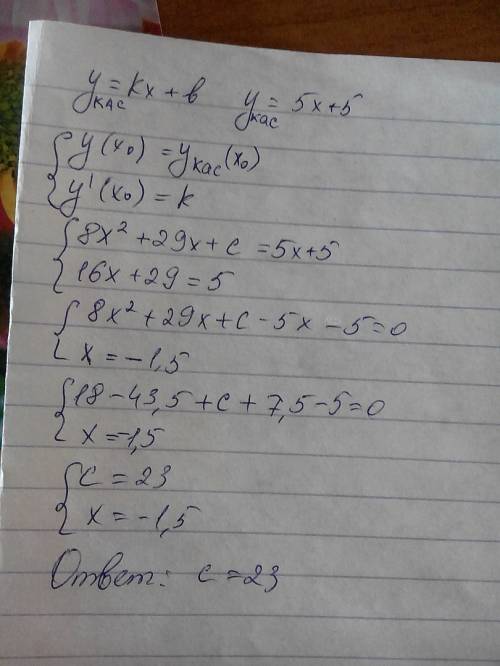 y_кас = kx + b   y_кас = 5x+5
{ y(x₀) = y_кас(x₀)
{ y'(x₀) = k
{ 8x² + 29x + c = 5x+5
{ 16x + 29 = 5
{ 8x² + 29x + c - 5x - 5 = 0
{ x = -1,5
{ 18 - 43,5 + c + 7,5 - 5 = 0
{ x = -1,5
{ c = 23
{ x = -1,5
Ответ: c = 23